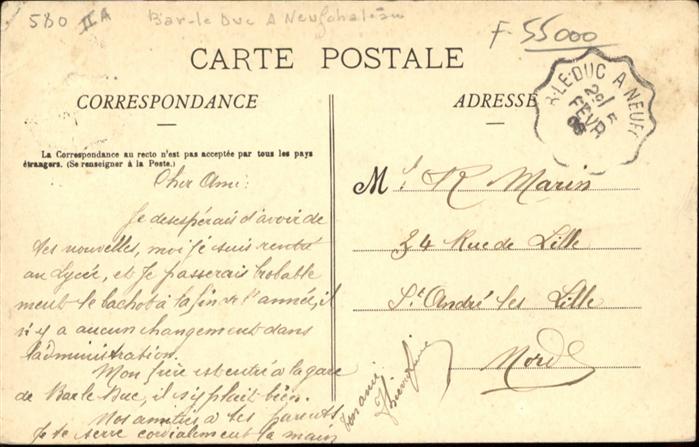 580 II A Bar-le Duc A Neufchateau
F-55000
CARTE POSTALE
CORRESPONDANCE
ADRESSE
R-LE-DUC A NEUFC
28 / 5
FEVR
06
La Correspondance au recto n'est pas acceptée par tous les pays
étrangers. (Se renseigner à la Poste.)
Cher Ami:
Je desespérais d'avoir de
tes nouvelles, moi je suis rentré
au Lycée, et je passerais probable
ment le bachot à la fin de l'année, il
n'y a aucun changement dans
l'administration.
Mon frère est entré à la gare
de Bar le Duc, il s'y plait bien.
Nos amitiés à tes parents
Je te serre cordialement la main
Ton ami
Mr. R Marin
34 Rue de Lille
St André les Lille
Nord